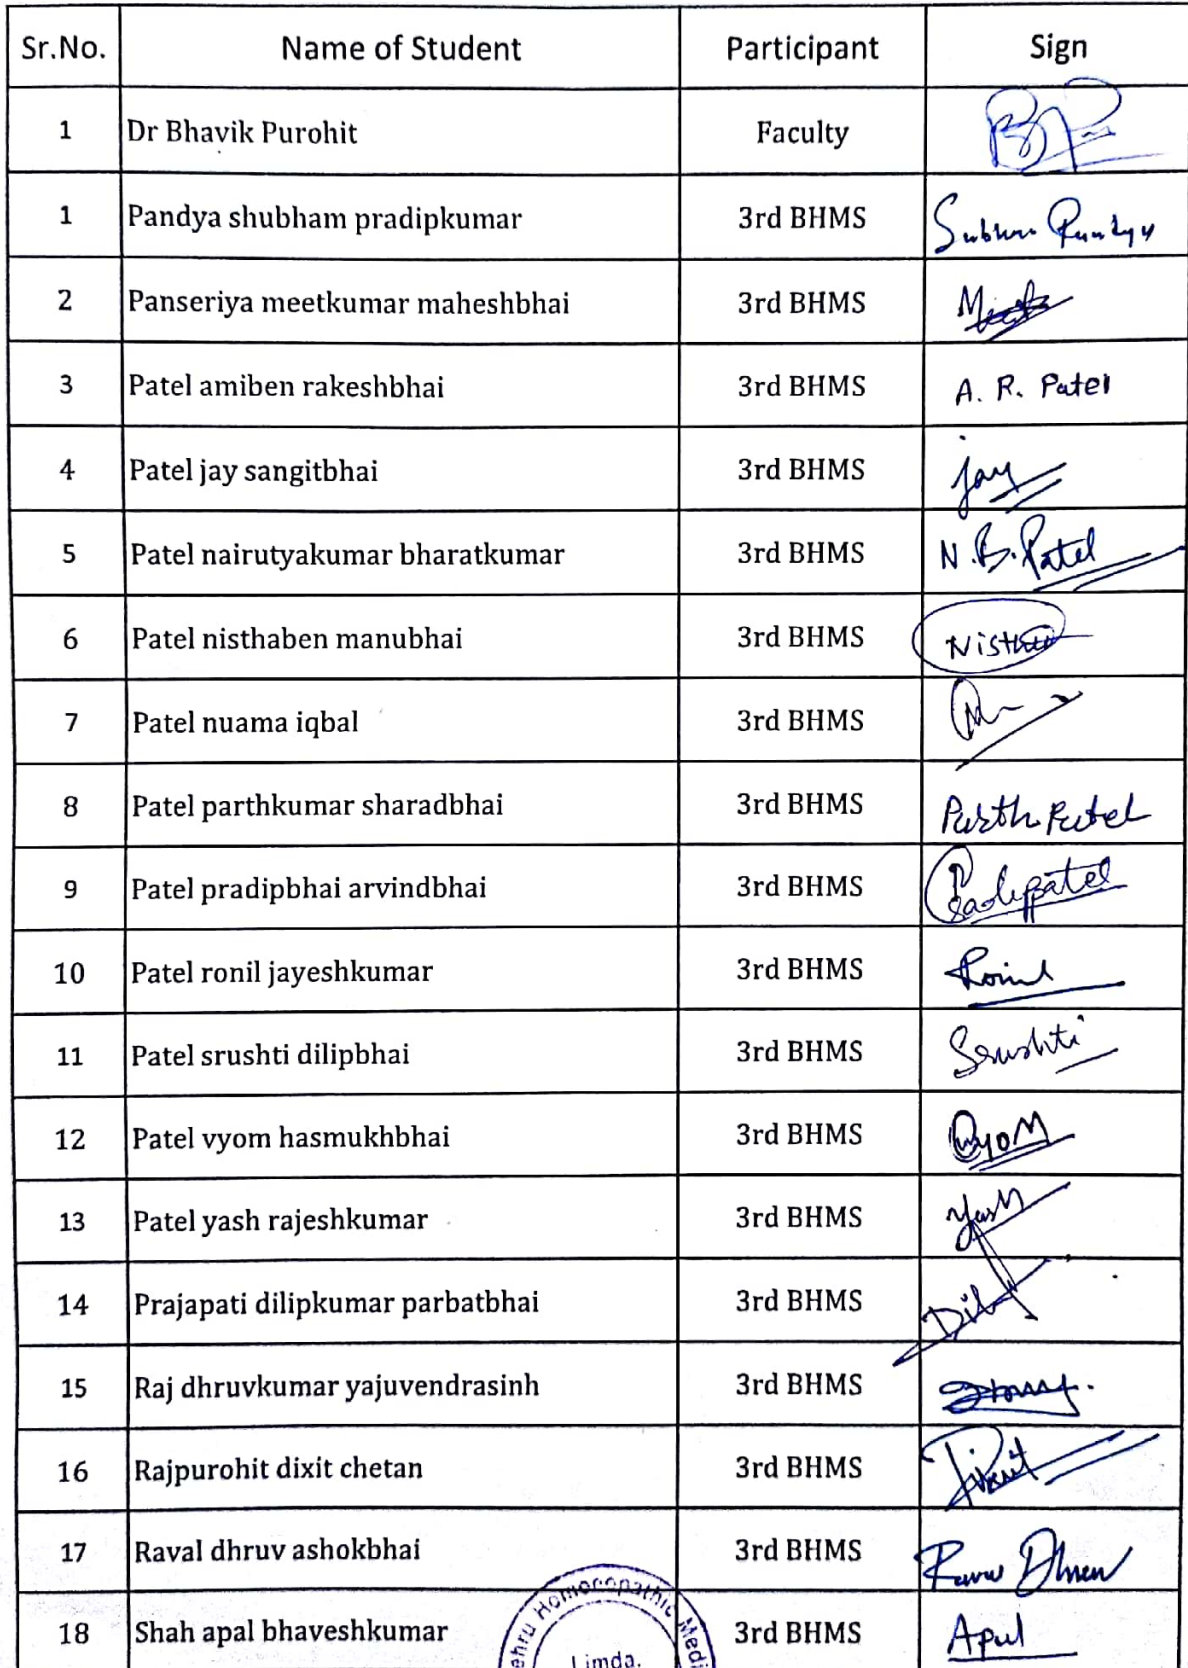 Sr.No. Name of Student Participant Sign
1 Dr Bhavik Purohit Faculty
1 Pandya shubham pradipkumar 3rd BHMS
2 Panseriya meetkumar maheshbhai 3rd BHMS
3 Patel amiben rakeshbhai 3rd BHMS A. R. Patel
4 Patel jay sangitbhai 3rd BHMS jay
5 Patel nairutyakumar bharatkumar 3rd BHMS N.B.Patel
6 Patel nisthaben manubhai 3rd BHMS Nistha
7 Patel nuama iqbal 3rd BHMS
8 Patel parthkumar sharadbhai 3rd BHMS Parth Patel
9 Patel pradipbhai arvindbhai 3rd BHMS
10 Patel ronil jayeshkumar 3rd BHMS Ronil
11 Patel srushti dilipbhai 3rd BHMS Srushti
12 Patel vyom hasmukhbhai 3rd BHMS Vyom
13 Patel yash rajeshkumar 3rd BHMS Yash
14 Prajapati dilipkumar parbatbhai 3rd BHMS
15 Raj dhruvkumar yajuvendrasinh 3rd BHMS
16 Rajpurohit dixit chetan 3rd BHMS
17 Raval dhruv ashokbhai 3rd BHMS
18 Shah apal bhaveshkumar 3rd BHMS Apal
ehru Homoeopathic Medi
Limda.